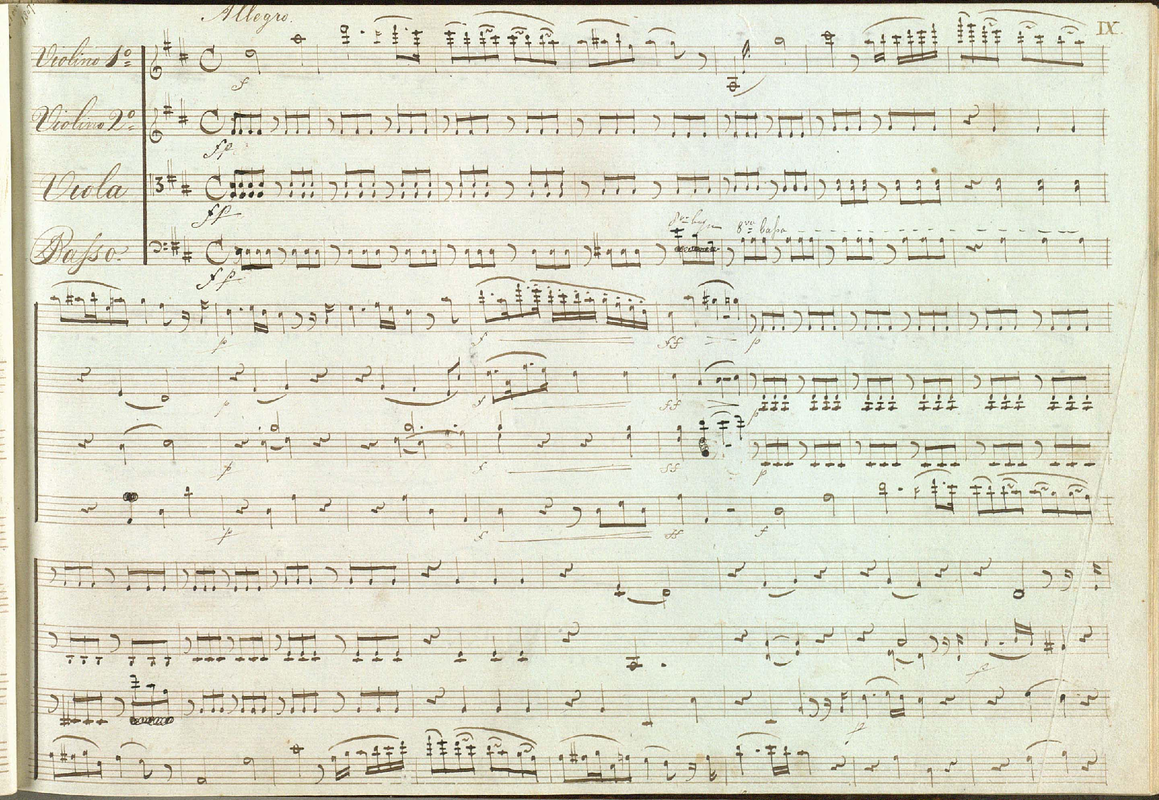 Allegro.
IX.
Violino 1º
f
Violino 2º
fp
Viola
3
fp
8va bassa
Basso.
fp
p
f
ff
p
p
f
ff
p
p
f
ff
p
p
f
ff
f
p
p